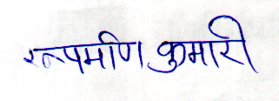 रूपमणि कुमारी